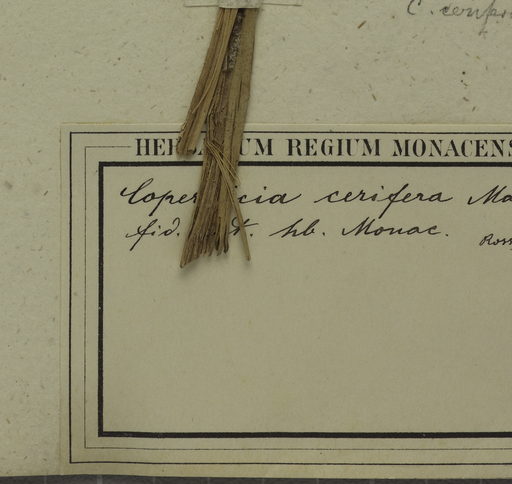 HER UM REGIUM MONACENS
Coper icia cerifera Ma
fid. t. hb. Monac. Ross